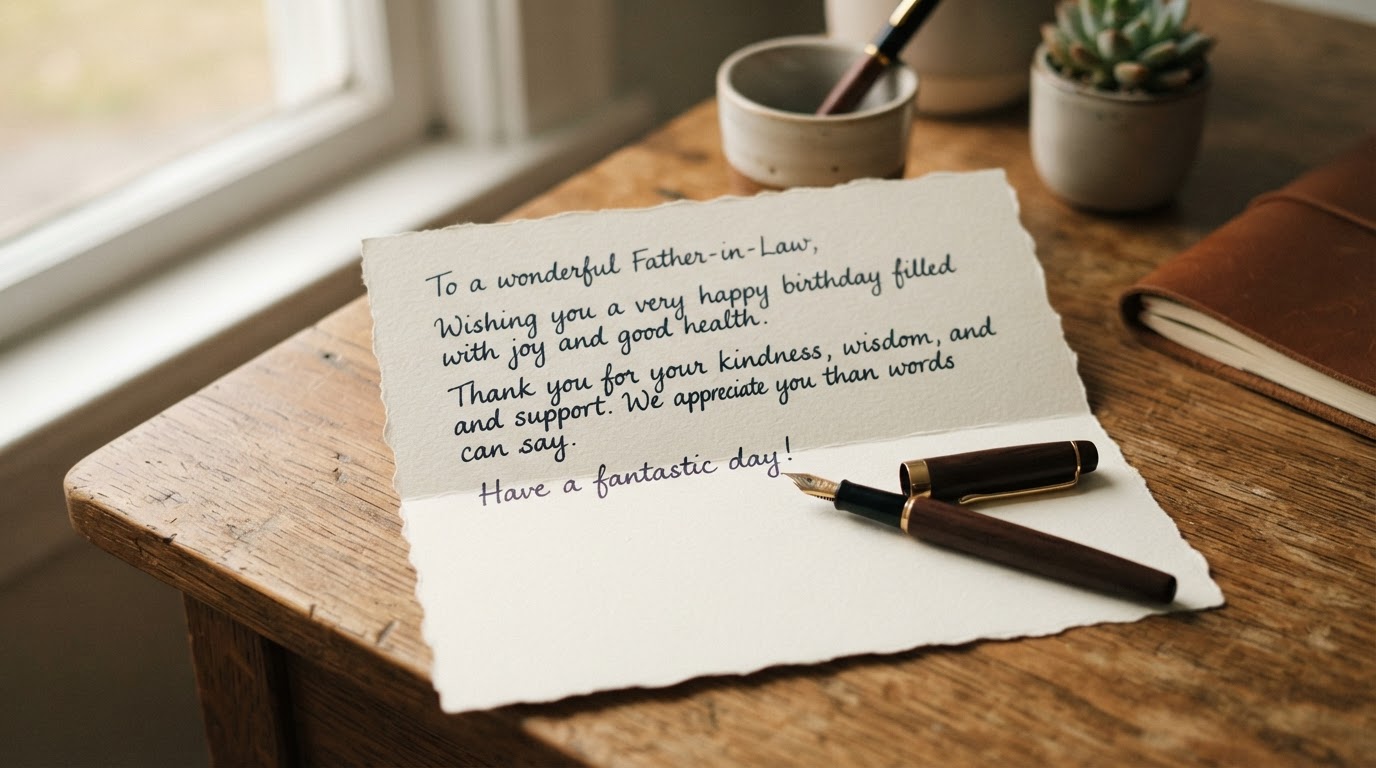 To a wonderful Father-in-Law,
Wishing you a very happy birthday filled
with joy and good health.
Thank you for your kindness, wisdom, and
and support. We appreciate you than words
can say.
Have a fantastic day!